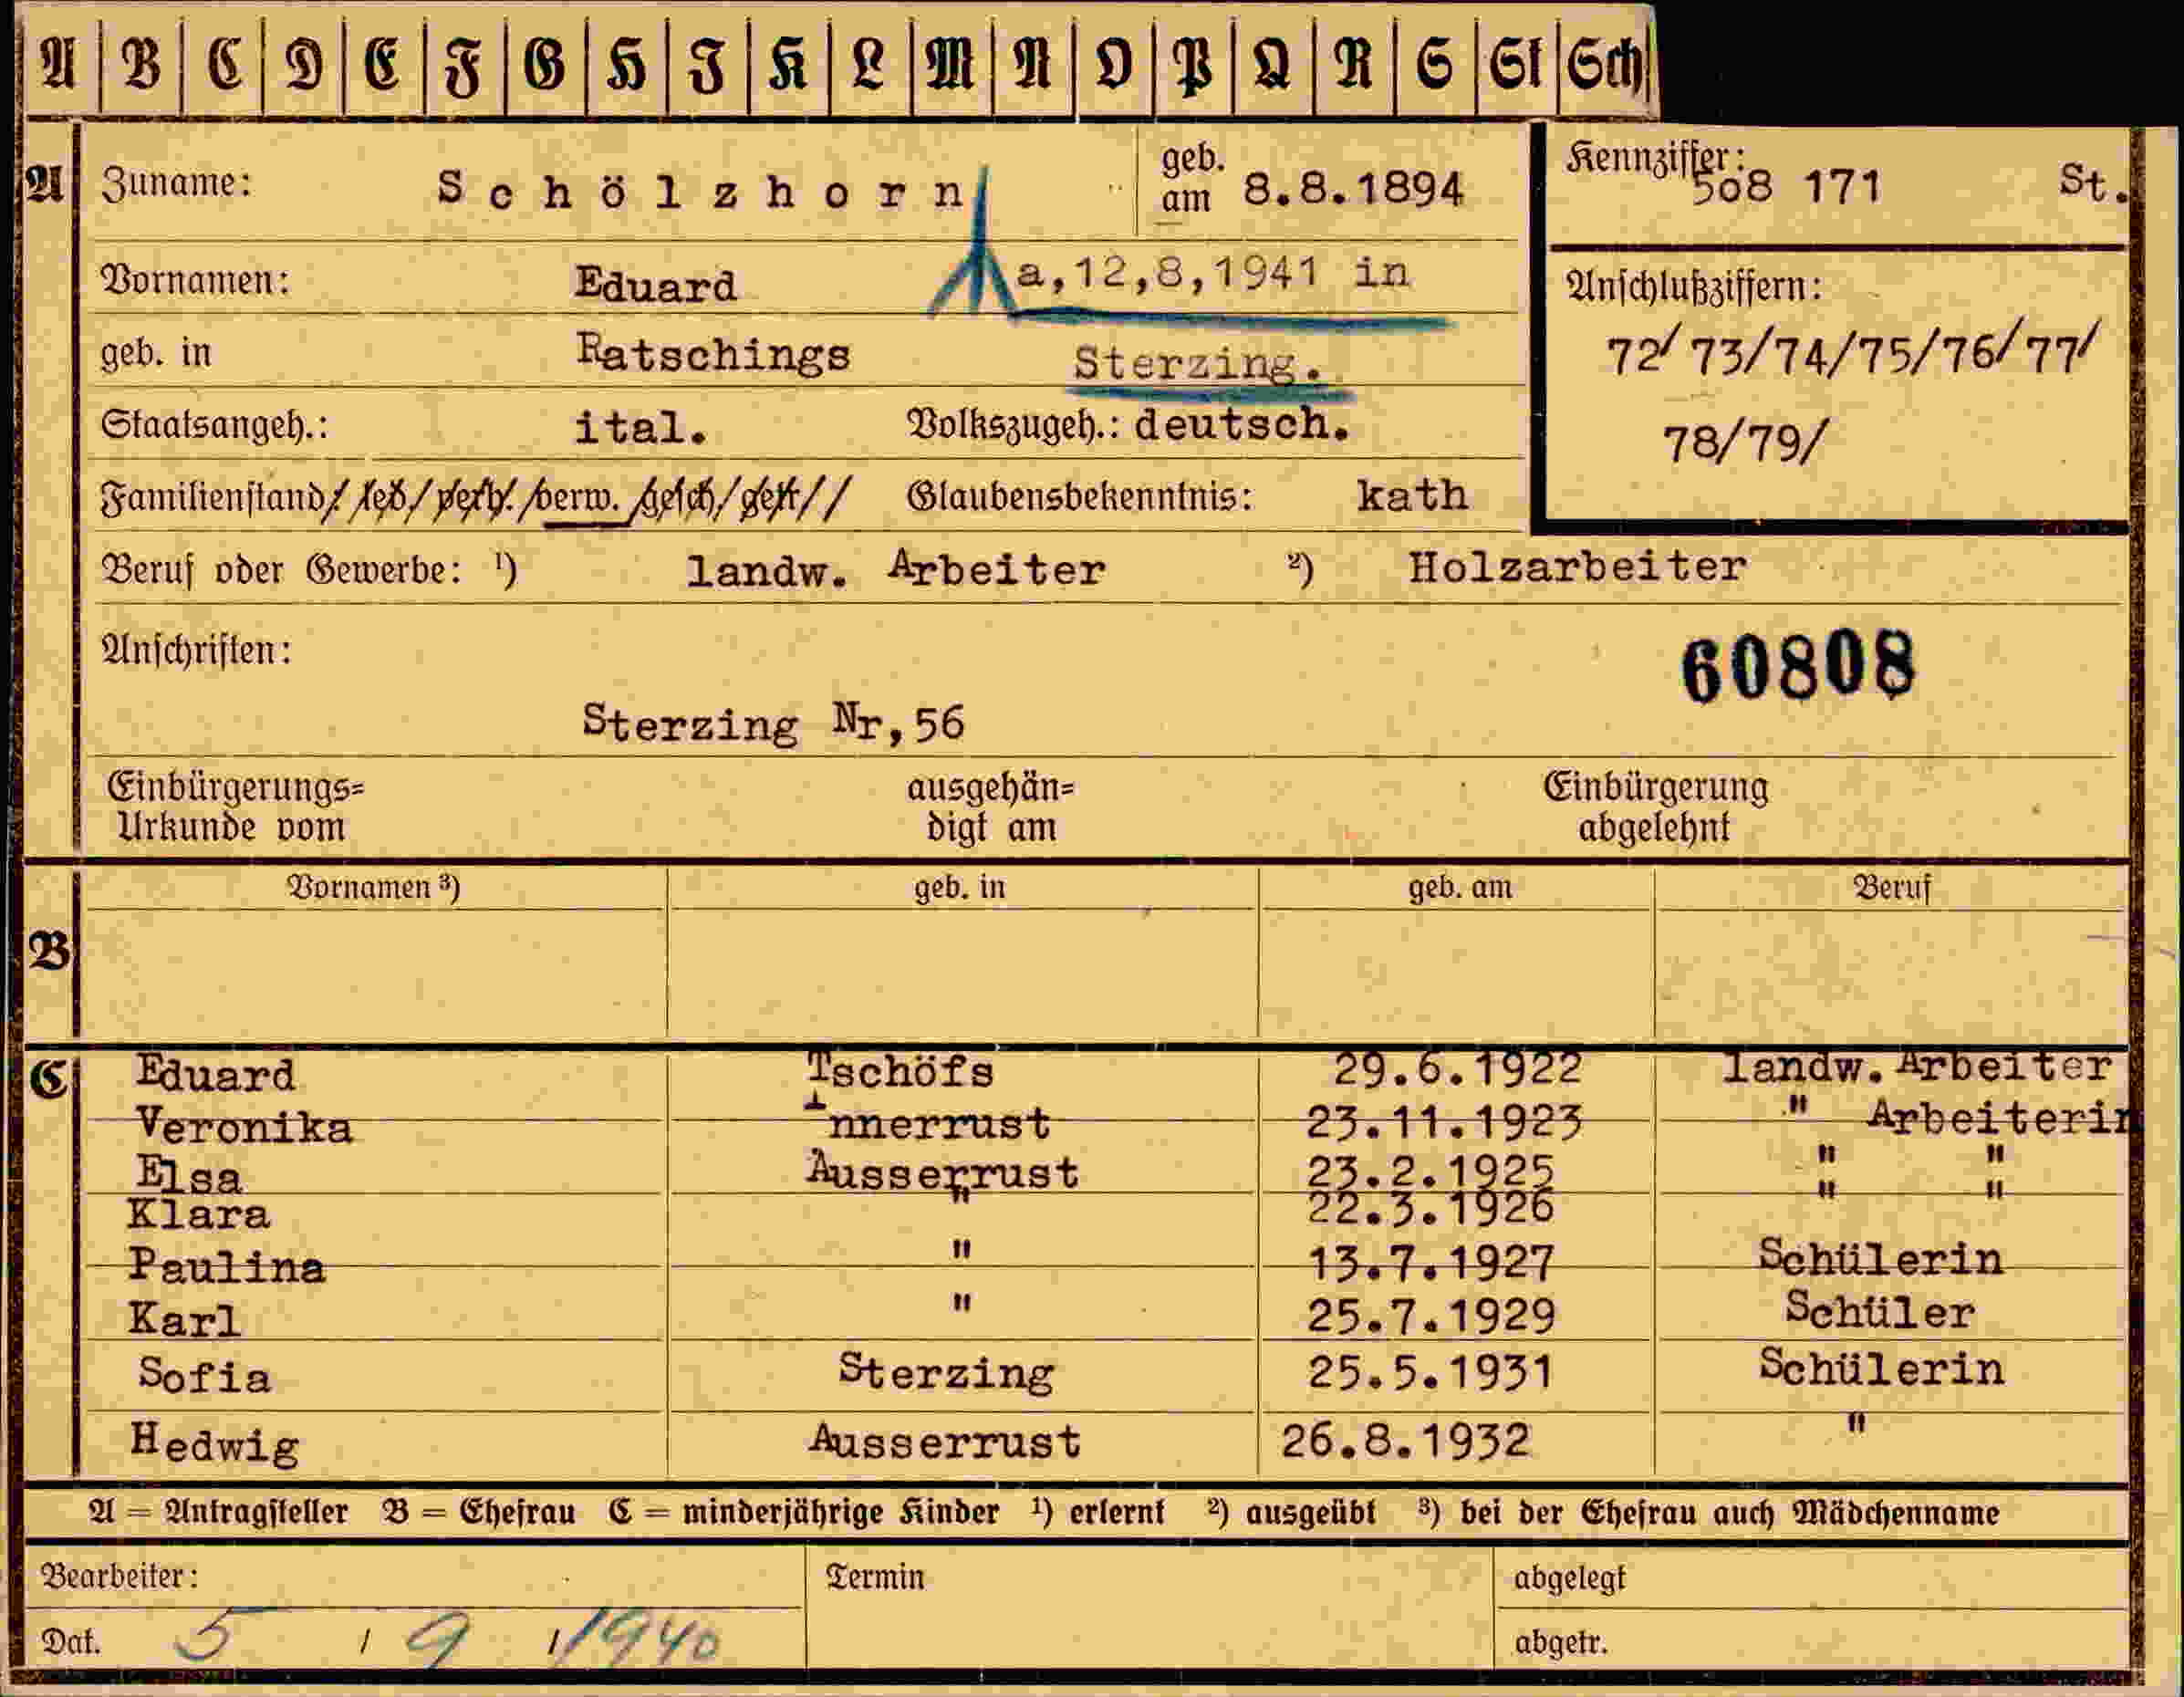 A B C D E F G H I K L M N O P Q R S St Sch
A Zuname: Schölzhorn geb. am 8.8.1894 Kennziffer: 508 171 St.
Vornamen: Eduard a,12,8,1941 in Anschlußziffern:
geb. in Ratschings Sterzing. 72/73/74/75/76/77/
Staatsangeh.: ital. Volkszugeh.: deutsch. 78/79/
Familienstand/ led/ verh./verw./gesch/getr// Glaubensbekenntnis: kath
Beruf oder Gewerbe: ¹) landw. Arbeiter ²) Holzarbeiter
Anschriften: 60808
Sterzing Nr,56
Einbürgerungs= ausgehän= Einbürgerung
Urkunde vom digt am abgelehnt
Vornamen ³) geb. in geb. am Beruf
B
C Eduard Tschöfs 29.6.1922 landw. Arbeiter
Veronika Innerrust 23.11.1923 " Arbeiterin
Elsa Ausserrust 23.2.1925 " "
Klara " 22.3.1926 " "
Paulina " 13.7.1927 Schülerin
Karl " 25.7.1929 Schüler
Sofia Sterzing 25.5.1931 Schülerin
Hedwig Ausserrust 26.8.1932 "
A = Antragsteller B = Ehefrau C = minderjährige Kinder ¹) erlernt ²) ausgeübt ³) bei der Ehefrau auch Mädchenname
Bearbeiter: Termin abgelegt
Dat. 5 / 9 / 1940 abgetr.